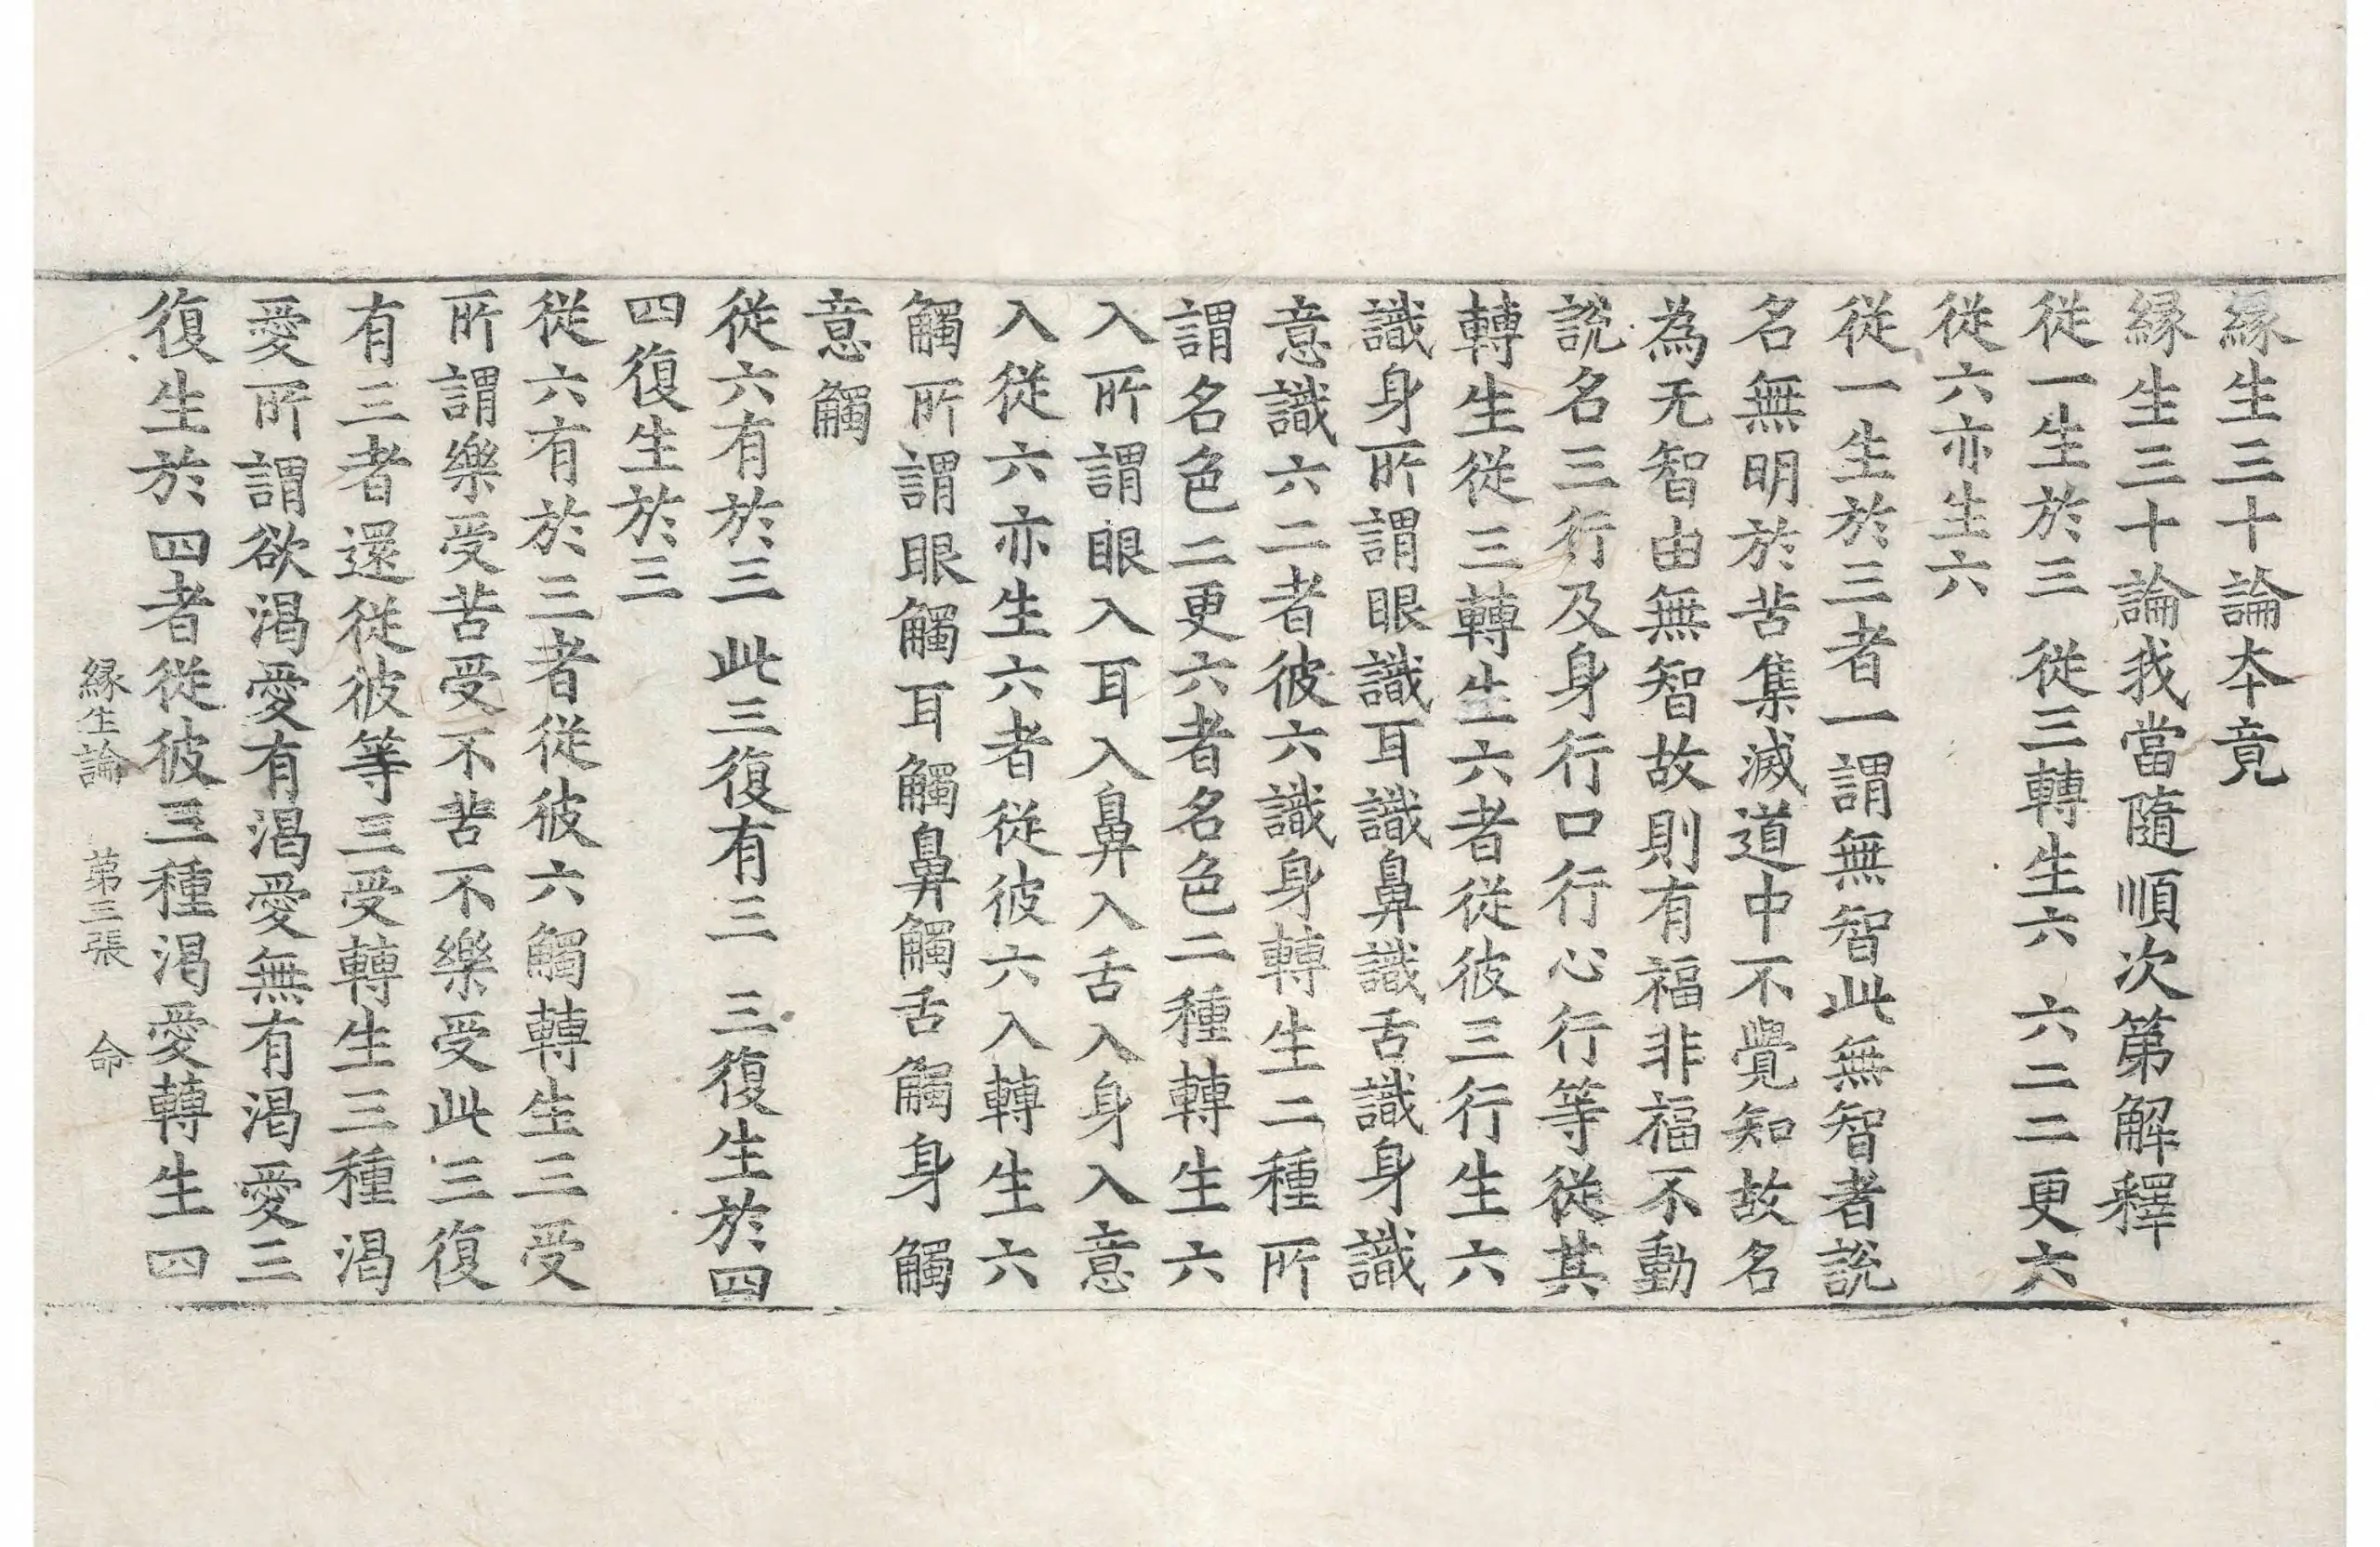 縁生三十論夲竟
縁生三十論我當隨順次第解釋
從一生於三　從三轉生六　六二二更六
從六亦生六
從一生於三者一謂無智此無智者說
名無明於苦集滅道中不覺知故名
為无智由無智故則有福非福不動
說名三行及身行口行心行等從其
轉生從三轉生六者從彼三行生六
識身所謂眼識耳識鼻識舌識身識
意識六二者彼六識身轉生二種所
謂名色二更六者名色二種轉生六
入所謂眼入耳入鼻入舌入身入意
入從六亦生六者從彼六入轉生六
觸所謂眼觸耳觸鼻觸舌觸身觸
意觸
從六有於三　此三復有三　三復生於四
四復生於三
從六有於三者從彼六觸轉生三受
所謂樂受苦受不苦不樂受此三復
有三者還從彼等三受轉生三種渴
愛所謂欲渴愛有渴愛無有渴愛三
復生於四者從彼三種渴愛轉生四
縁生論　第三張　命